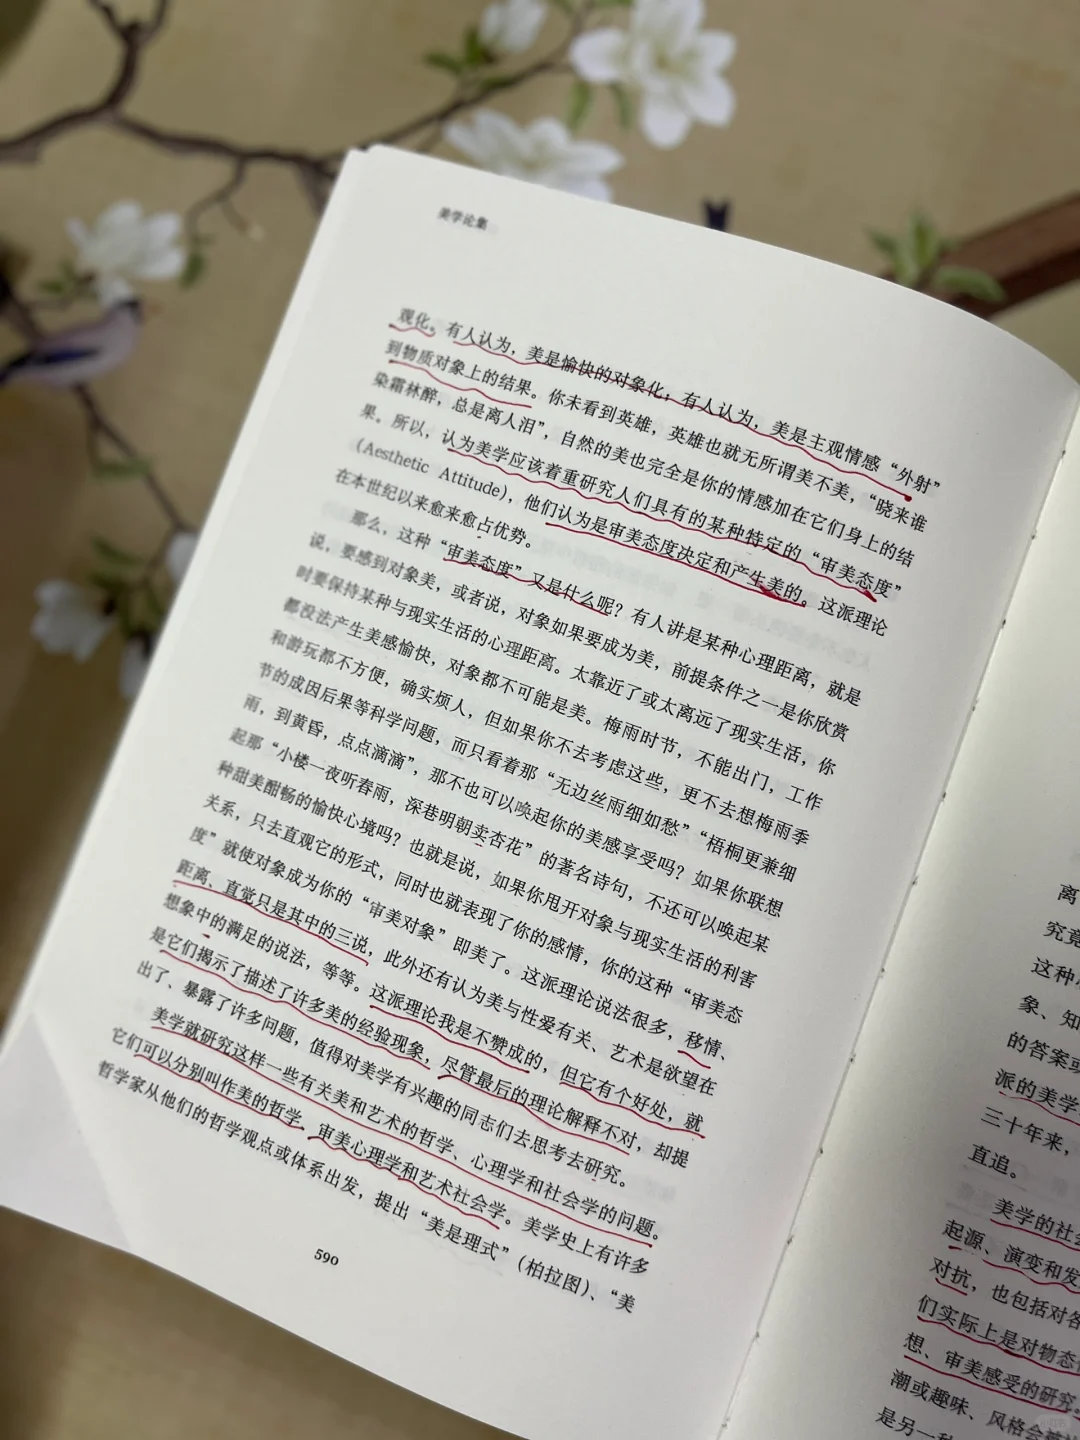 美学论集
观化。有人认为，美是愉快的对象化；有人认为，美是主观情感“外射”
到物质对象上的结果。你未看到英雄，英雄也就无所谓美不美，“晓来谁
染霜林醉，总是离人泪”，自然的美也完全是你的情感加在它们身上的结
果。所以，认为美学应该着重研究人们具有的某种特定的“审美态度”
（Aesthetic Attitude），他们认为是审美态度决定和产生美的。这派理论
在本世纪以来愈来愈占优势。
那么，这种“审美态度”又是什么呢？有人讲是某种心理距离，就是
说，要感到对象美，或者说，对象如果要成为美，前提条件之一是你欣赏
时要保持某种与现实生活的心理距离。太靠近了或太离远了现实生活，你
都没法产生美感愉快，对象都不可能是美。梅雨时节，不能出门，工作
和游玩都不方便，确实烦人，但如果你不去考虑这些，更不去想梅雨季
节的成因后果等科学问题，而只看着那“无边丝雨细如愁”“梧桐更兼细
雨，到黄昏，点点滴滴”，那不也可以唤起你的美感享受吗？如果你联想
起那“小楼一夜听春雨，深巷明朝卖杏花”的著名诗句，不还可以唤起某
种甜美酣畅的愉快心境吗？也就是说，如果你甩开对象与现实生活的利害
关系，只去直观它的形式，同时也就表现了你的感情，你的这种“审美态
度”就使对象成为你的“审美对象”即美了。这派理论说法很多，移情、
距离、直觉只是其中的三说，此外还有认为美与性爱有关、艺术是欲望在
想象中的满足的说法，等等。这派理论我是不赞成的，但它有个好处，就
是它们揭示了描述了许多美的经验现象，尽管最后的理论解释不对，却提
出了、暴露了许多问题，值得对美学有兴趣的同志们去思考去研究。
美学就研究这样一些有关美和艺术的哲学、心理学和社会学的问题。
它们可以分别叫作美的哲学、审美心理学和艺术社会学。美学史上有许多
哲学家从他们的哲学观点或体系出发，提出“美是理式”（柏拉图）、“美
590
离
究竟
这种
象、知
的答案或
派的美学
三十年来，
直追。
美学的社会
起源、演变和发
对抗，也包括对各
们实际上是对物态
想、审美感受的研究。
潮或趣味、风格会
是另一种